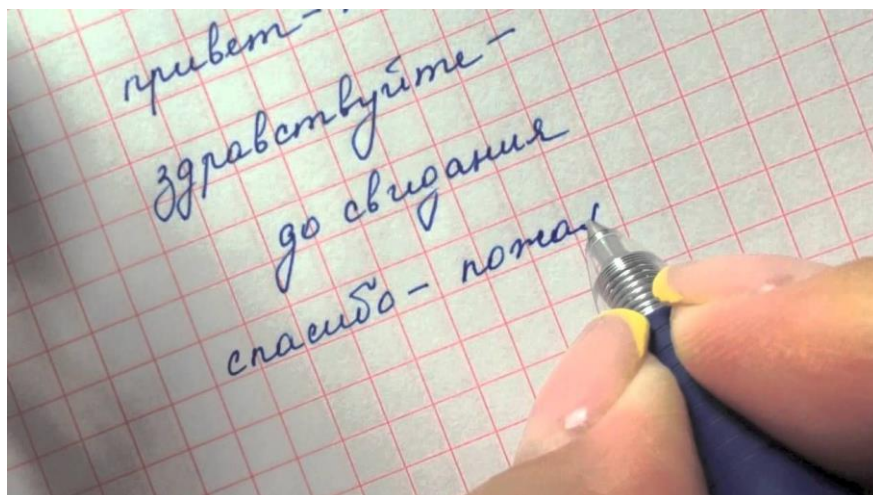 привет -
здравствуйте -
до свидания
спасибо - пожал